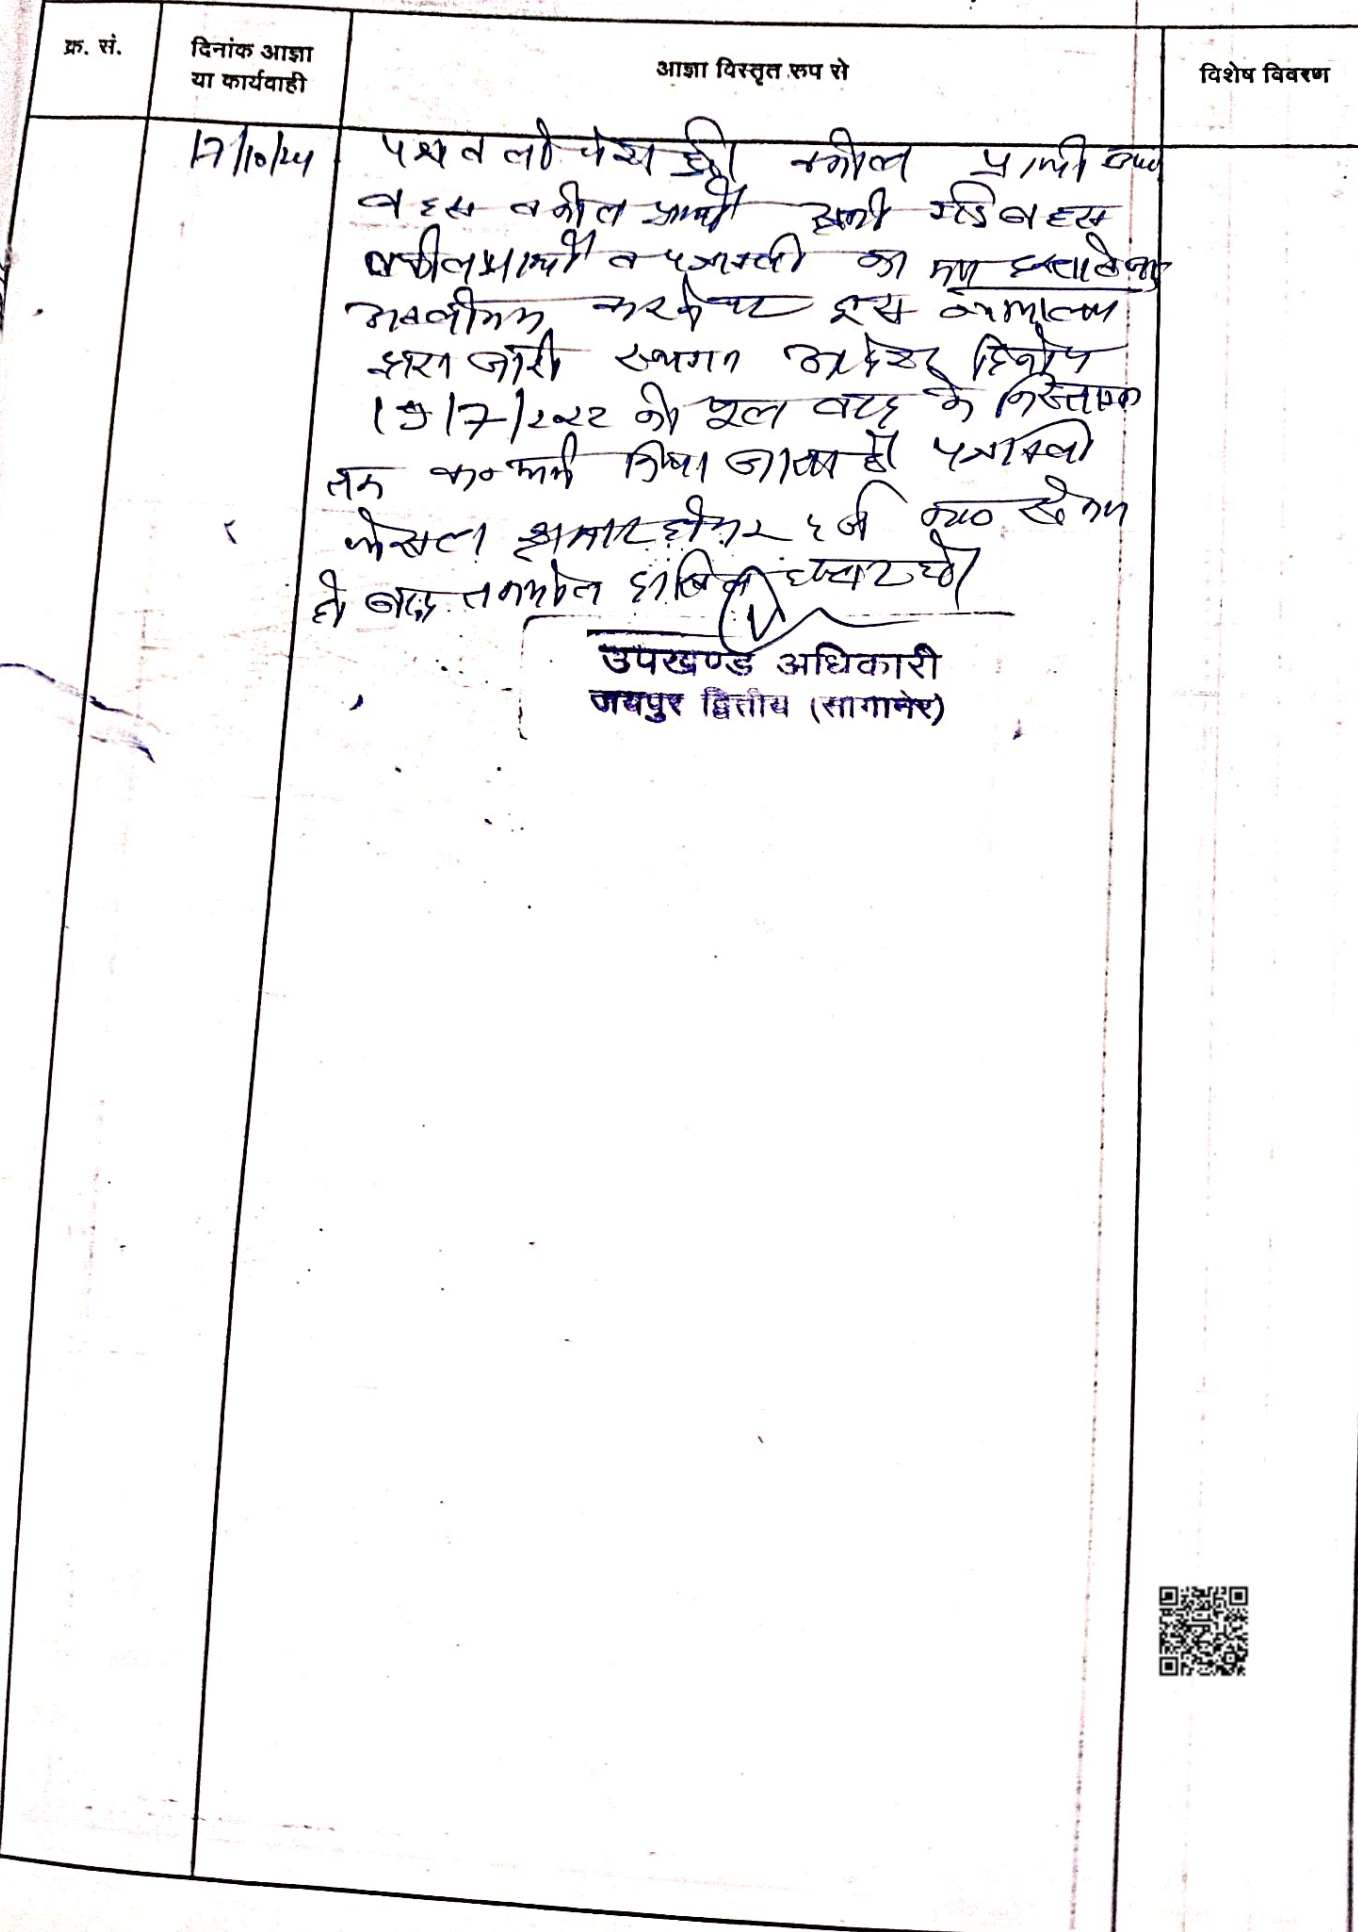 क्र. सं.
दिनांक आज्ञा
या कार्यवाही
आज्ञा विस्तृत रुप से
विशेष विवरण
17/10/24
पेश हुई। वकील प्रार्थी उप०
बहस वकील प्रार्थी सुनी गई बहस
वकील प्रार्थी व पत्रावली का मय दस्तावेजात
अवलोकन करने पर इस न्यायालय
द्वारा जारी स्थगन आदेश दिनांक
19/7/2022 को मूल वाद के निस्तारण
तक कन्फर्म किया जाता है। पत्रावली
फैसला शुमार होकर दर्ज न० से कम
हो बाद तकमील दाखिल दफ्तर हो।
उपखण्ड अधिकारी
जयपुर द्वितीय (सांगानेर)